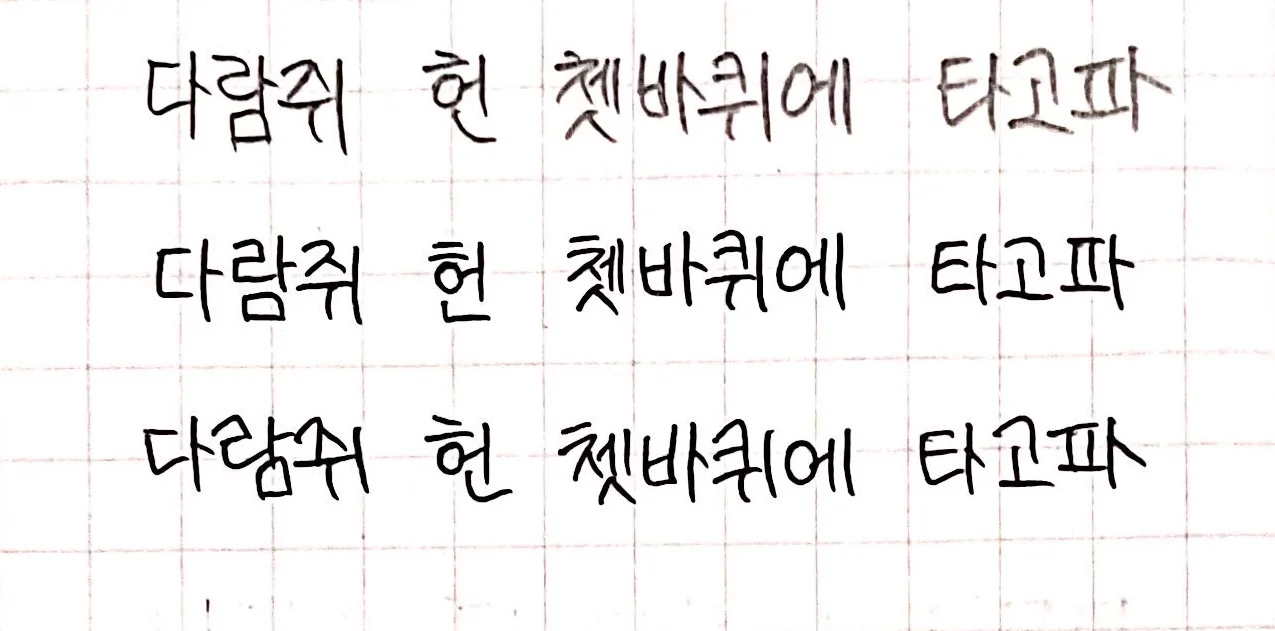 다람쥐 헌 쳇바퀴에 타고파
다람쥐 헌 쳇바퀴에 타고파
다람쥐 헌 쳇바퀴에 타고파